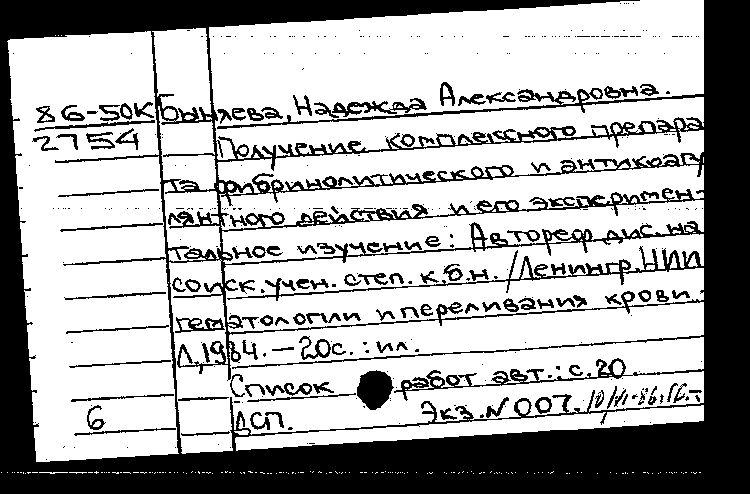 86-50К Быняева, Надежда Александровна.
2754 Получение комплексного препара
та фибринолитического и антикоагу
лянтного действия и его эксперимен-
тальное изучение: Автореф. дис. на
соиск. учен. степ. к.б.н. /Ленингр. НИИ
гематологии и переливания крови.-
Л., 1984. — 20с. : ил.
Список работ авт.: с.20.
6 ДСП. Экз. N 007.